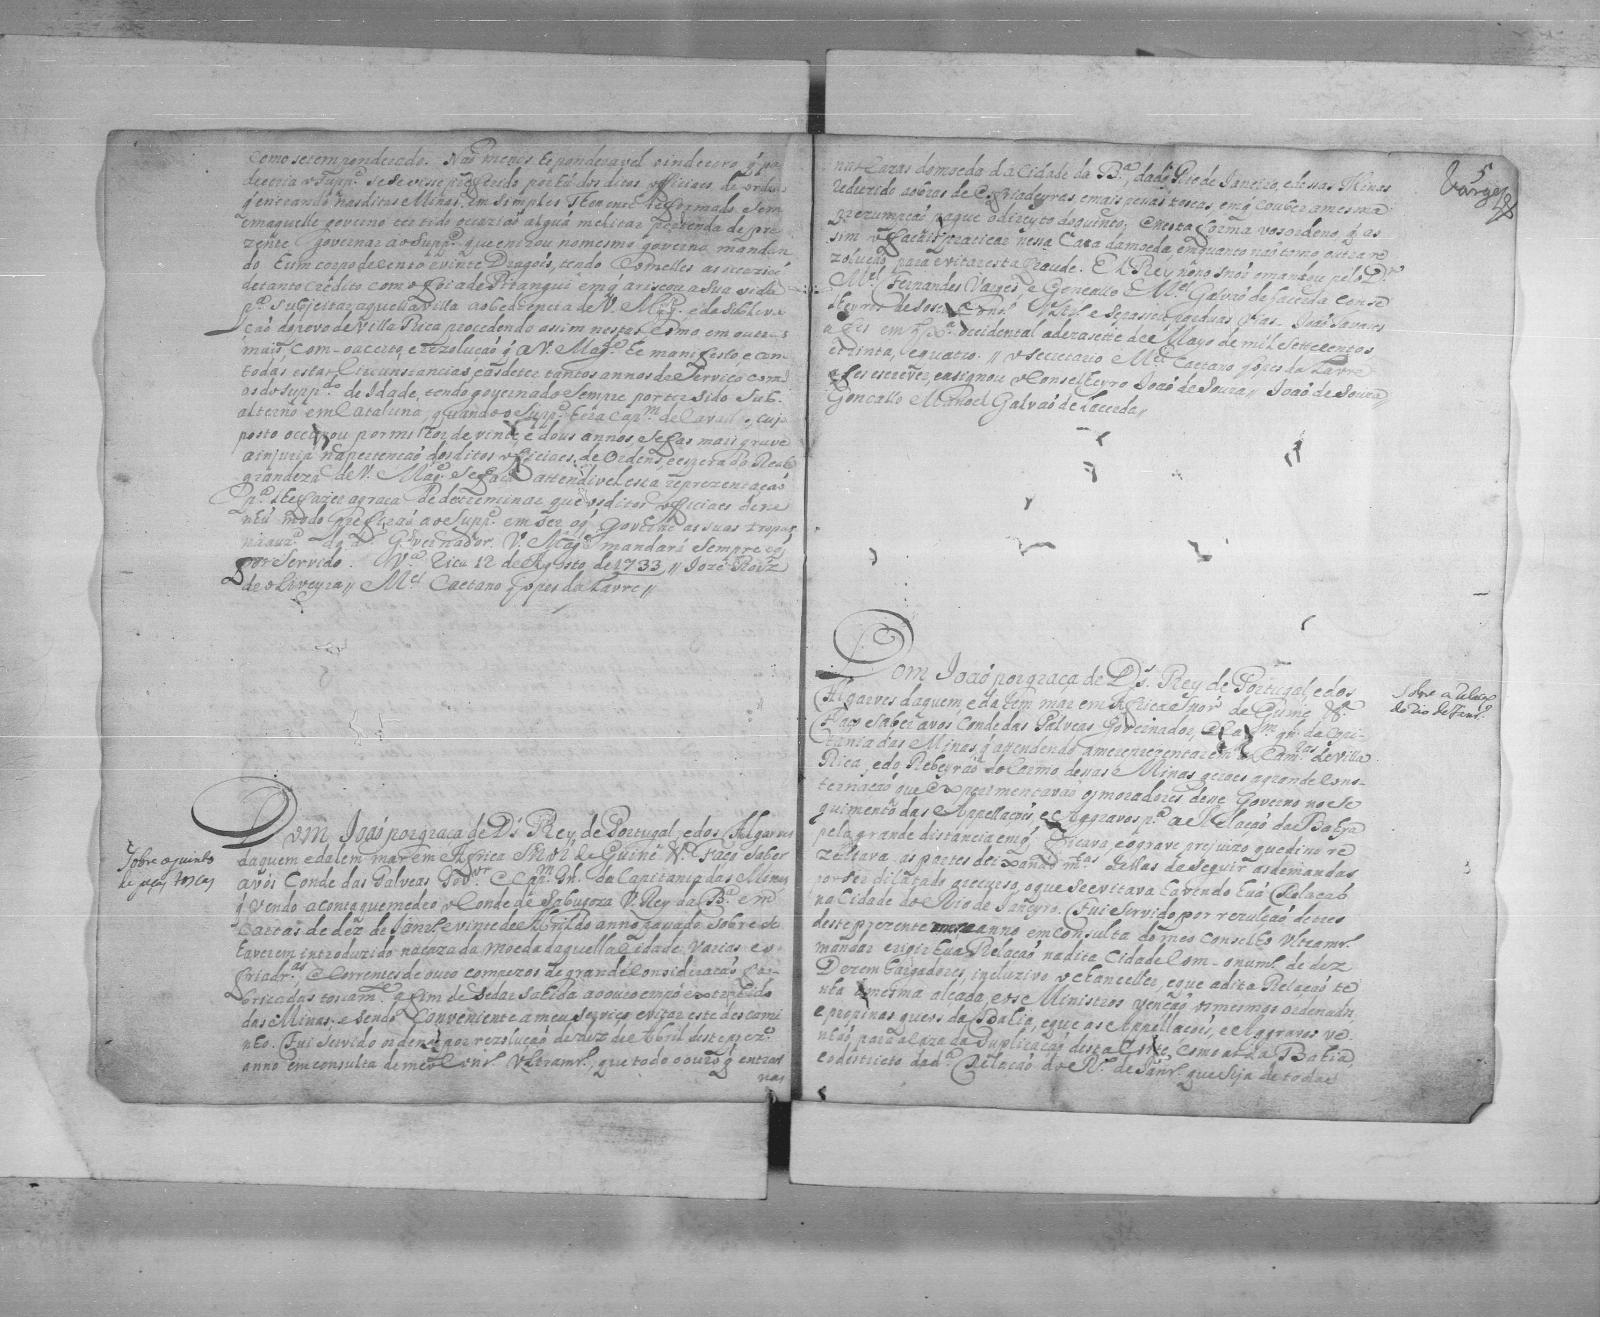 como setem ponderado. Não menos he ponderavel o indecoro q̃ pa
deceria o Supp.e se se visse preferido por hũ dos ditos officiaes de ordens
q̃ entrando nas ditas Minas, em simples Thenente reformado sem
em aquelle governo ter tido occaziaõ algũa melitar pertenda de pre
zente governar ao Supp.e que entrou no mesmo governo mandan
do hum corpo de cento e vinte Dragois, tendo com elles as occazioẽs
de tanto credito como foi a de Pitangui em q̃ ariscou a sua vida
p.a subjeitar aquella villa a obdiencia de V. Mag.e e da Subleva
çaõ do povo de Villa Rica procedendo assim nestas como em outras
mais, com o acerto, e rezoluçaõ q̃ a V. Mag.e he manifesto e com
todas estas circunstancias, e as de ter tantos annos de Serviço como
os do Supp.do de Idade, tendo governado sempre por ter sido Sub
alterno em Cataluna, quando o Supp.e hera Cap.m de Cavallos, cujo
posto occupou por milhor de vinte, e dous annos, se faz mais grave
a injuria na pertençaõ dos ditos officiaes, de Ordens, e espera da Real
grandeza de V. Mag.e se faça attendivel esta reprezentaçaõ
p.a lhe fazer a graça de detreminar que os ditos officiaes de ne
nhũ modo prefiraõ ao Supp.e em ser o q̃ governe as suas tropas
na auz.a do d.o Governador. V. Mag.e mandará sempre o q̃
for Servido. V.a Rica 12 de Agosto de 1733 // Jozé Roiz
de Oliveyra // M.el Caetano Lopes da Lavre //
Sobre o quinto
de peças toscas
Dom Joaõ por graça de D.s Rey de Portugal, e dos Algarves
daquem e dalem mar em Africa Snõr de Guiné &.a Faço saber
a vós Conde das Galveas Gov.or e Cap.m Gn.l da Capitania das Minas
q̃ vendo a conta que me deo o Conde de Sabugoza V. Rey da B.a em
Cartas de dez de Janr.o e vinte de Abril do anno paçado sobre se
haverem introduzido na caza da moeda daquella Cidade varias e
friadr.as e Correntes de ouro com pezos de grande consideraçaõ fa
bricadas toscam.te a fim de se dar sahida ao ouro em pó extrahido
das Minas; e sendo conveniente a meu serviço evitar este descami
nho. Fui servido ordenar por rezoluçaõ de dez de Abril deste prez.te
anno em consulta de meo Cons.o Ultramr.o, que todo o ouro q̃ entrar
nas
nas Cazas da moeda da Cidade da B.a, da do Rio de Janeiro, e dessas Minas
reduzido a obras de esfriadeyras, e mais peças toscas, em q̃ couber a mesma
prezumpçaõ pague o direyto do quinto; e nesta forma vos ordeno q̃ as
sim o façais praticar nessa Caza da moeda, emquanto naõ tomo outra re
zoluçaõ para evitar esta fraude. El Rey nosso Snõr o mandou pelo D.or
M.el Fernandes Varges e Goncallo M.el Galvaõ de Lacerda Conse
lheyros do seo Cons.o Ultr.o e se passou por duas vias. Joaõ Tavares
a fes em Lx.a occidental a dezasette de Mayo de mil settecentos
e trinta, e quatro // o Secretario M.el Caetano Lopes da Lavre
a fes escrever, e asignou o Conselheyro Joaõ de Souza // Joaõ de Souza //
Goncallo Manoel Galvaõ de Lacerda //
5
Varges
Sobre a Relaç.ão
do Rio de Janr.o
Dom Joaõ por graça de D.s Rey de Portugal, e dos
Algarves daquem e dalem mar em Africa Snõr de Guiné &.a
Faço saber a vos Conde das Galveas Governador, e Cap.m gn.l da Capi-
tania das Minas, q̃ attendendo a me reprezentarem as Cam.ras de Villa
Rica, e do Rebeyraõ do Carmo dessas Minas geraes a grande cons-
ternaçaõ que experimentavaõ os moradores desse Governo no se
guimento das Appellaçoẽs, e Aggravos p.a a Relaçaõ da Bahya
pela grande distancia em q̃ ficava, e o grave prejuizo que disso re
zultava as partes deixando m.tas dellas de seguir as demandas
por ser dilatado o recurso, o que se evitava havendo huã Relaçaõ
na Cidade do Rio de Janeyro. Fui Servido por rezuluçaõ de treo
deste prezente anno em consulta do meo Conselho Ultramr.o
mandar erigir huã Relaçaõ na dita Cidade com o num.o de dez
Dezembargadores, incluzivo o Chanceller, e que a dita Relaçaõ te
nha a mesma alçada, e os Ministros vençaõ os mesmos ordenados
e propinas que os da Bahia, e que as Appellaçoẽs, e Aggravos ve
nhaõ para a Caza da Suplicaçaõ desta Corte, como as da Bahia,
e o destricto da d.a Relaçaõ do R.o de Janr.o que seja de todas